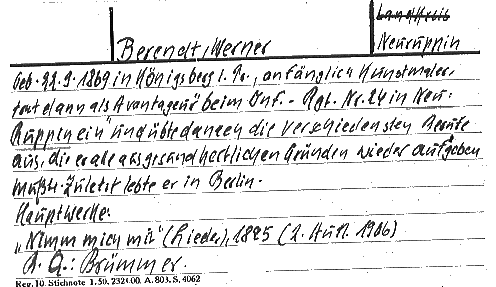 Landkreis
Berendt, Werner Neuruppin
Geb. 22.9.1869 in Königsberg i. Pr., anfänglich Kunstmaler,
trat dann als Avantageur beim Inf.-Rgt. Nr. 24 in Neu-
Ruppin ein und übte danach die verschiedensten Berufe
aus, die er aber aus gesundheitlichen Gründen wieder aufgeben
mußte. Zuletzt lebte er in Berlin.
Hauptwerke:
„Nimm mich mit" (Lieder), 1895 (2. Aufl. 1906)
A. Q.: Brümmer.
Reg. 10. Stichnote 1. 50. 2321.00. A. 803. S. 4062